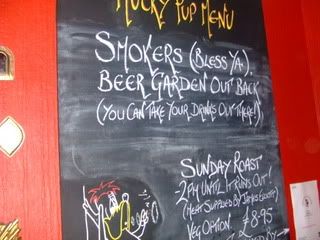 MUCKY PUP MENU
SMOKERS (BLESS YA).
BEER GARDEN OUT BACK
(YOU CAN TAKE YOUR DRINKS OUT THERE!)
SUNDAY ROAST
2PM UNTIL IT RUNS OUT!
(MEAT SUPPLIED BY JAMES
VEG OPTION. £8.95